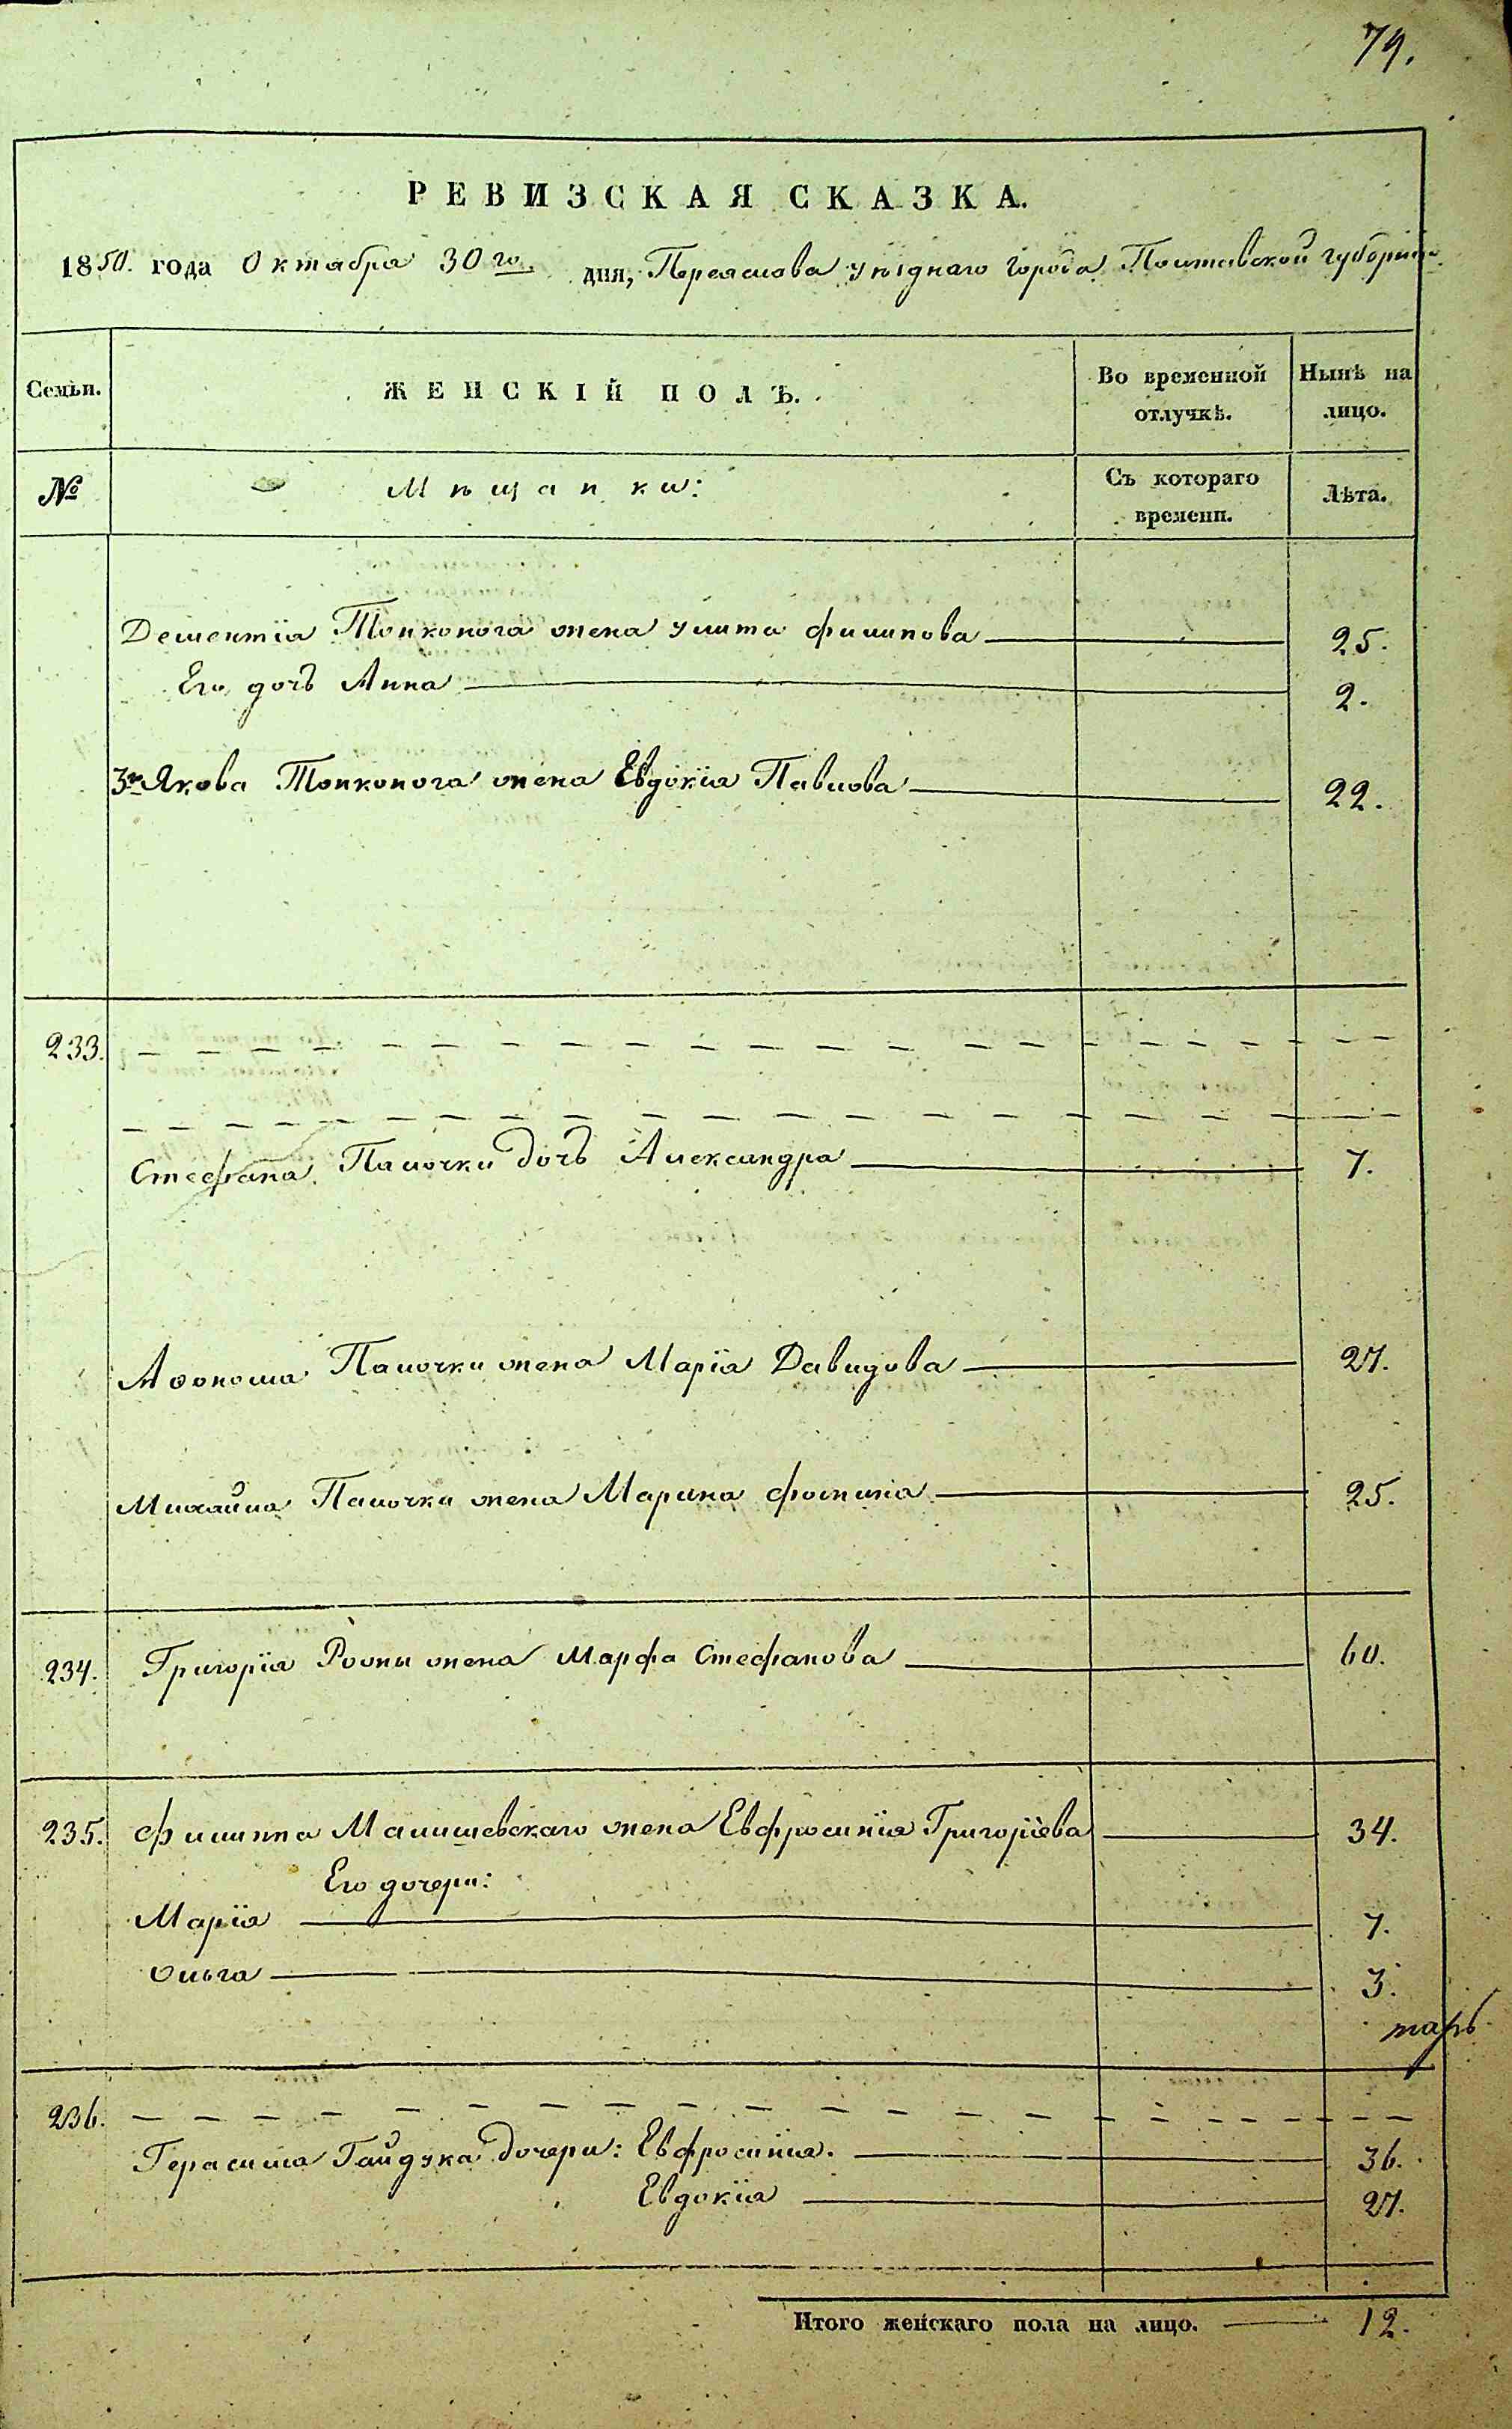 79.
РЕВИЗСКАЯ СКАЗКА.
1850. года Октября 30го дня, Переяслова уѣзднаго города Полтавской губерніи
Семьи.
ЖЕНСКІЙ ПОЛЪ.
Во временной отлучкѣ.
Нынѣ на лицо.
№
Мѣщанки:
Съ котораго времени.
Лѣта.
Дементія Тонконога жена Улита Филипова 25.
Его дочь Анна 2.
3й Якова Тонконога жена Евдокія Павлова 22.
233.
Стефана Палочки дочь Александра 7.
Аѳонома Палочки жена Марія Давидова 27.
Михайла Палочки жена Марина 25.
234. Григорія жена Марфа Стефанова 60.
235. Филиппа Малишевскаго жена Евфросинія Григоріева 34.
Его дочери:
Марія 7.
Ольга 3.
тарь
236.
Герасима Гайдука дочери: Евфросинія. 36.
Евдокія 27.
Итого женскаго пола на лицо. 12.